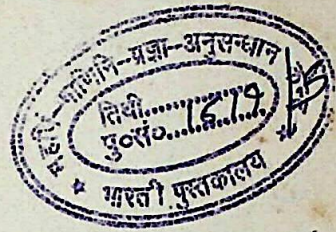 महर्षि--पाणिनि--प्रज्ञा--अनुसन्धान
तिथी..............
पु०सं०..1619..
भारती पुस्तकालय